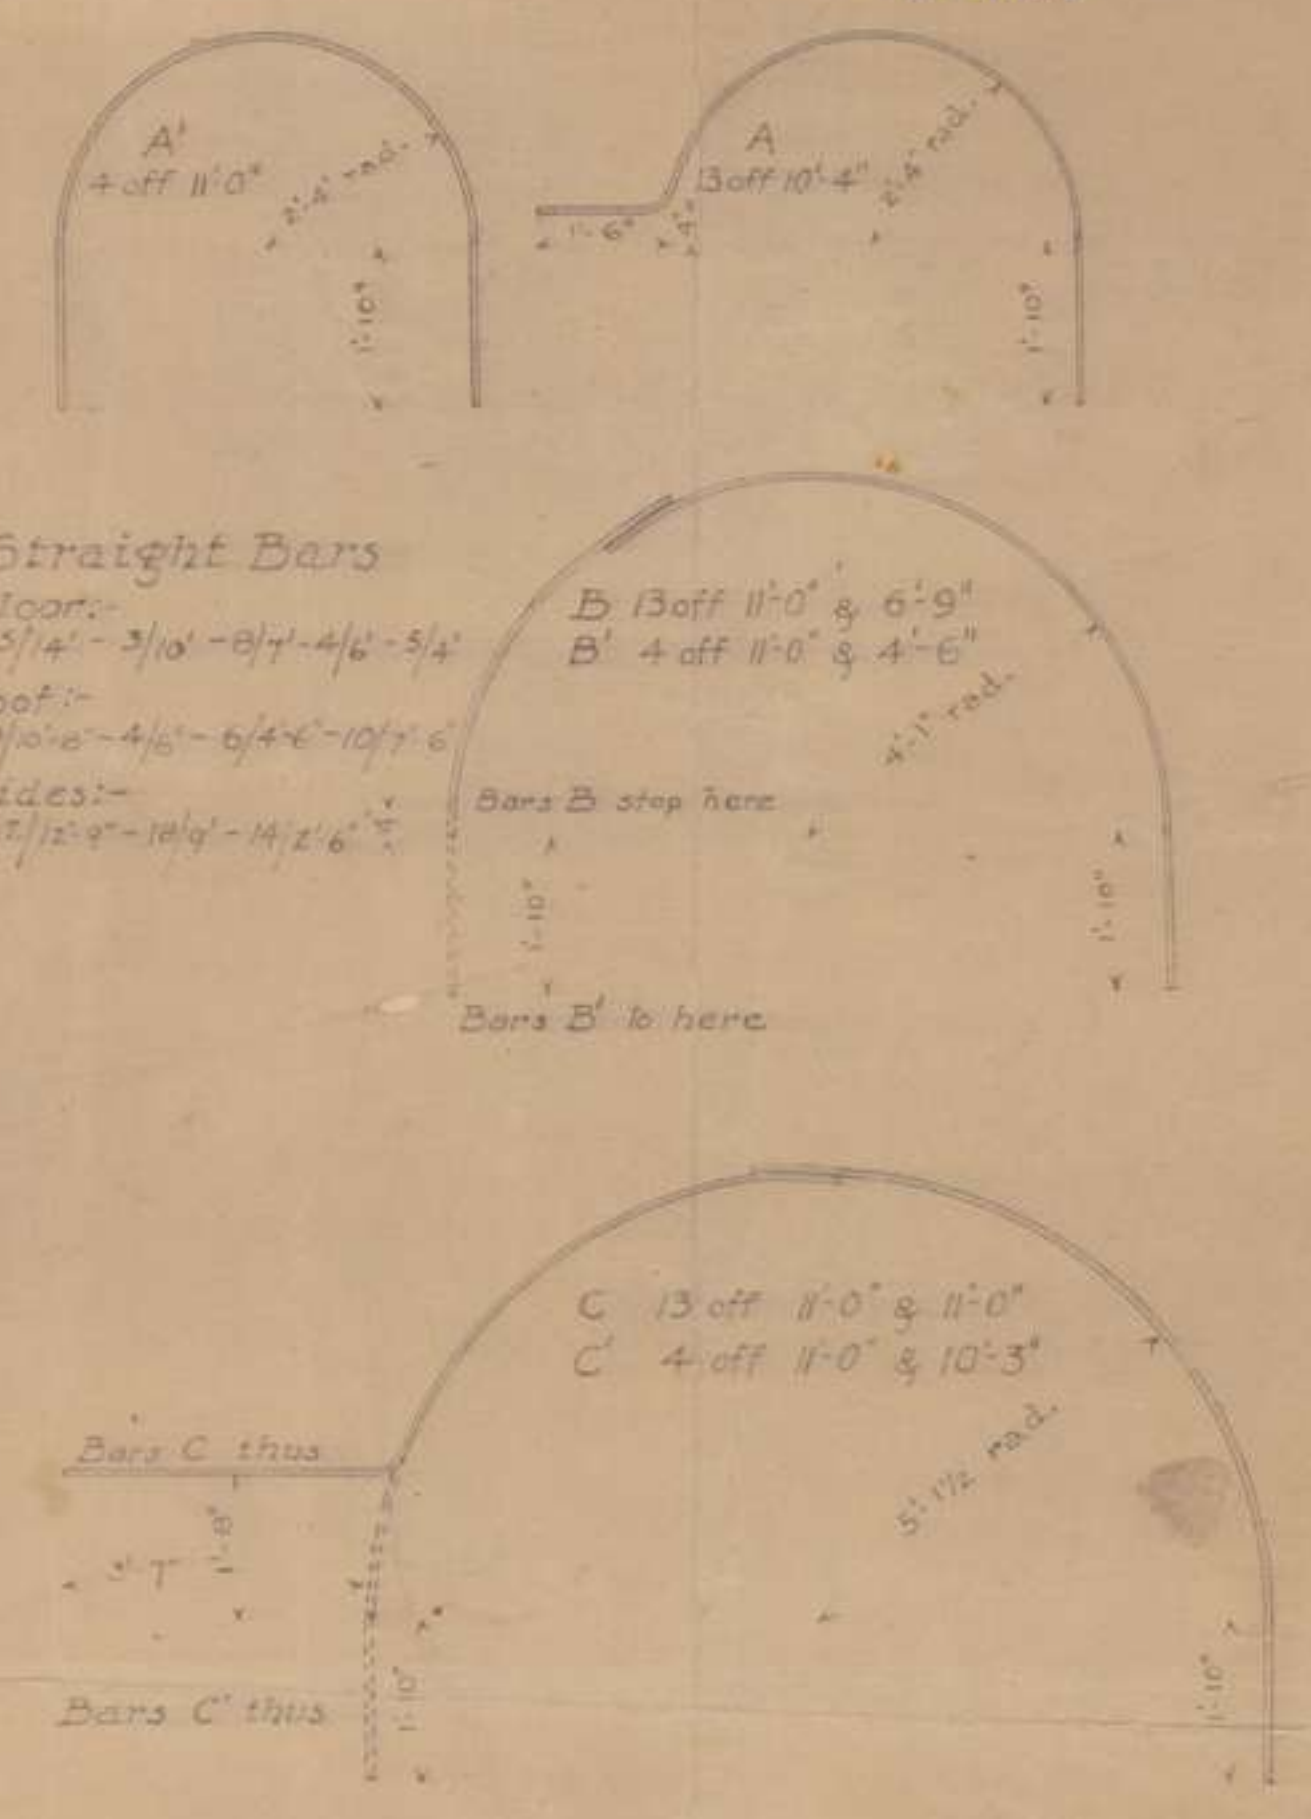 A'
4 off 11'-0"
2'-4" rad.
1'-10"
A
13 off 10'-4"
2'-4" rad.
1'-6"
4"
1'-10"
Straight Bars
5/14' - 3/10' - 8/7' - 4/6' - 5/4'
10'-8" - 4/6' - 6/4'-6" - 10/7'-6"
12'-9" - 18/9' - 14/2'-6"
B 13 off 11'-0" & 6'-9"
B' 4 off 11'-0" & 4'-6"
4'-1" rad.
Bars B stop here
1'-10"
1'-10"
Bars B' to here
C 13 off 11'-0" & 11'-0"
C' 4 off 11'-0" & 10'-3"
5'-1 1/2 rad.
Bars C thus
1'-8"
1'-10"
1'-10"
Bars C' thus